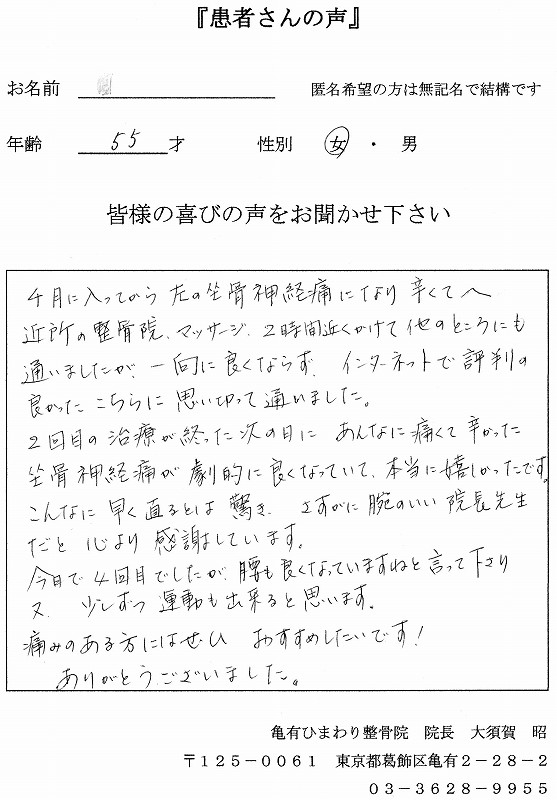 『患者さんの声』
お名前 匿名希望の方は無記名で結構です
年齢 55 才 性別 女 ・ 男
皆様の喜びの声をお聞かせ下さい
4月に入ってから 左の坐骨神経痛になり 辛くて
近所の整骨院、マッサージ、2時間近くかけて他のところにも
通いましたが、一向に良くならず、インターネットで評判の
良かったこちらに思い切って通いました。
2回目の治療が終った次の日に あんなに痛くて辛かった
坐骨神経痛が劇的に良くなっていて、本当に嬉しかったです。
こんなに早く直るとは驚き、さすがに腕のいい院長先生
だと 心より感謝しています。
今日で4回目でしたが、腰も良くなっていますねと言って下さり
又、少しずつ運動も出来ると思います。
痛みのある方にはぜひ おすすめしたいです！
ありがとうございました。
亀有ひまわり整骨院 院長 大須賀 昭
〒125－0061 東京都葛飾区亀有2－28－2
03－3628－9955